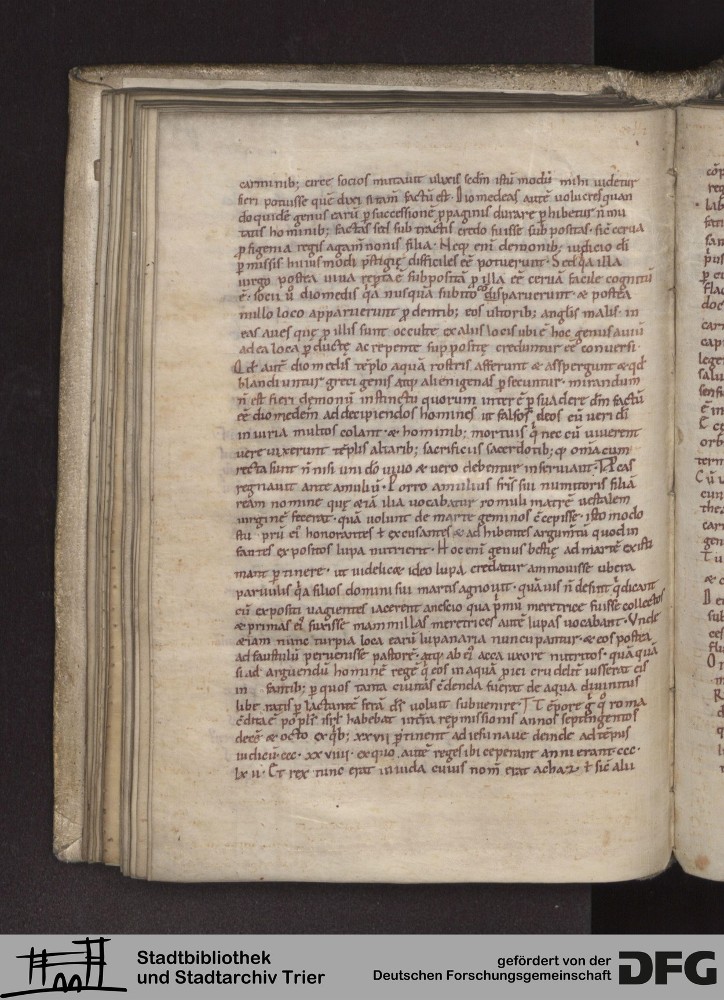 carminib; circe socios mutauit ulixis scdm istū modū mihi uidetur
fieri potuisse quē dixi si tam̄ factū est. Diomedeas autē uolucres quan
doquidē genus earū p successionē ppaginis durare phibetur n̄ mu
tatis hominib; factas sed subtractis credo fuisse suppositas. sic̄ cerua
p figenia regis agamēnonis filia. Neq; enī demonib; iudicio di
pmissis huiusmodi p̄stigię difficiles eē potuerunt. Sed qa illa
uirgo postea uiua repta ē suppositā p illa eē ceruā facile cognitū
ē. socii ū diomedis qa nusquā subito disparuerunt & postea
nullo loco apparuerunt pdentib; eos ultorib; anglis malis. in
eas aues quę p illis sunt occulte ex aliis locis ubi ē hoc genus auiū
ad ea loca pductę ac repente suppositę creduntur eē conuersi.
Qd autē diomedis tēplo aquā rostris afferunt & asspergunt & qd
blandiuntur greci genis atq; alienigenas psecuntur. mirandum
n̄ est fieri demonū instinctu quorum inter ē psuadere dm̄ factū
eē diomedem ad decipiendos homines ut falsos deos cū ueri di
iniuria multos colant. & hominib; mortuis q nec cū uiuerent
uere uixerunt tēplis altarib; sacrificiis sacerdotib; q omia cum
recta sunt n̄ nisi uni dō uiuo & uero debentur inseruiant. Pcas
regnauit ante amuliū. Porro amulius fris sui numitoris filiā
ream nomine quę &iā ilia uocabatur romuli matrē uestalem
uirginē fecerat. quā uolunt de marte geminos ēcepisse. isto modo
stu prū ei honorantes ł excusantes & adhibentes argum̄tū quod in
fantes expositos lupa nutrierit. Hoc enī genus bestię ad martē existi
mant ptinere. ut uidelic& ideo lupa credatur ammouisse ubera
paruulis qa filios domini sui martis agnouit. quāuis n̄ desint q dicant
cū expositi uagientes iacerent a nescio qua pmū meretrice fuisse collectos
& primas ei suxisse mammillas meretrices autē lupas uocabant. Unde
&iam nunc turpia loca earū lupanaria nuncupantur. & eos postea
ad faustulū peruenisse pastorē. atq; ab ei acca uxore nutritos. quāquā
si ad arguendū hominē regē q eos in aquā pici crudelit iusserat eis
in fantib; p quos tanta ciuitas ēdenda fuerat de aqua diuinitus
liberatis p lactantē ferā ds uoluit subuenire. T Tēpore g q roma
ēdita ē popls isrl habebat in terra repmissionis annos septingentos
decē & octo ex qb; xxvii ptinent ad iesu naue deinde ad tēpus
iudicū. ccc. xx viiii. ex quo autē reges ibi ceperant anni erant. ccc.
lx ii. Et rex tunc erat in iuda cuius nom̄ erat achaz ł sic̄ alii
Stadtbibliothek
und Stadtarchiv Trier
gefördert von der
Deutschen Forschungsgemeinschaft
DFG